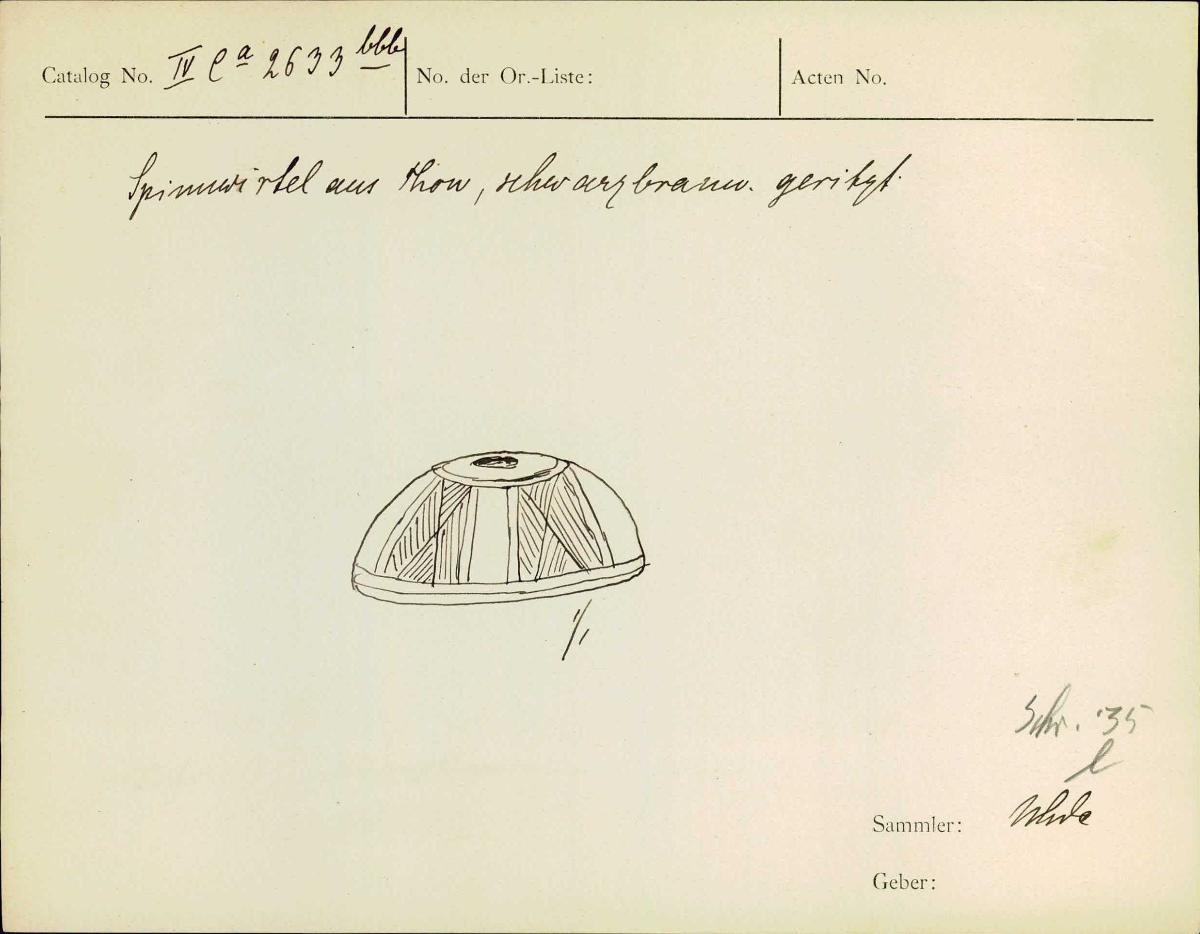 Catalog No. IV Ca 2633 bbb No. der Or.-Liste: Acten No.
Spinnwirtel aus Thon, schwarzbraun. geritzt.
1/1
Schr. '35
l
Sammler: Uhde
Geber: